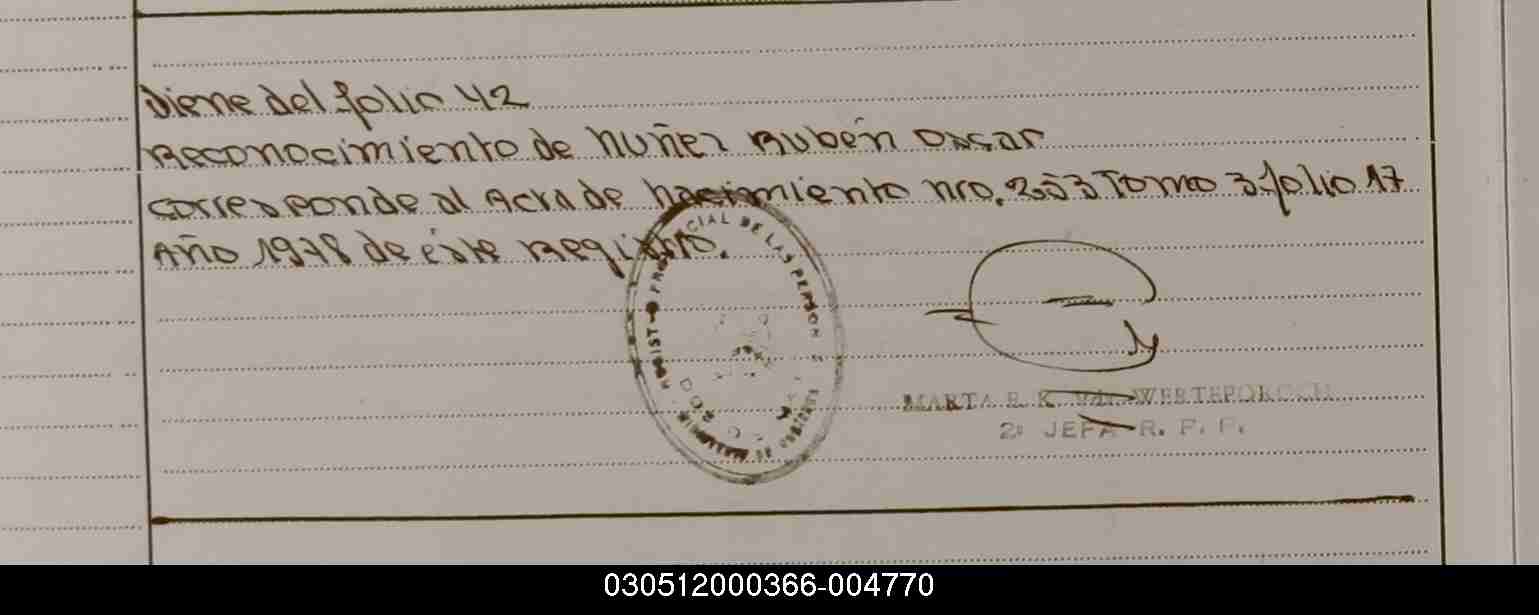 Viene del folio 42
Reconocimiento de Nuñez Rubén Oscar
corresponde al Acta de Nacimiento nro. 253 Tomo 3 folio 17
Año 1978 de éste Registro.
PROVINCIAL DE LAS PERSON
MARTA E. K.
2ª JEFA R. P. P.
030512000366-004770